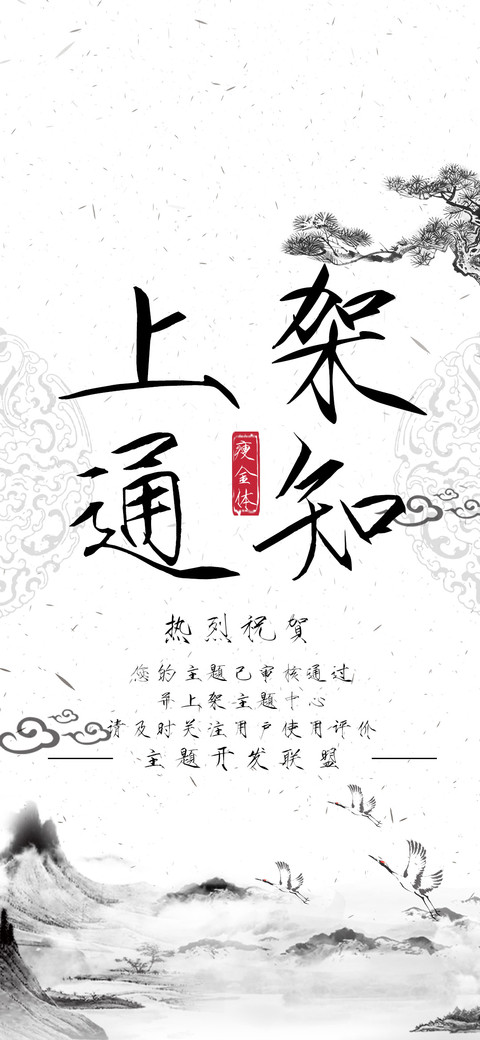 上架
通知
瘦金体
热烈祝贺
您的主题已审核通过
并上架主题中心
请及时关注用户使用评价
主题开发联盟